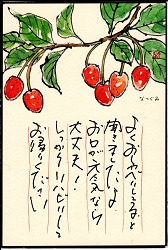 なつぐみ
よくおしゃべりしてると
聞きましたよ
お口が元気なら
大丈夫!
しっかりリハビリして
お帰りください